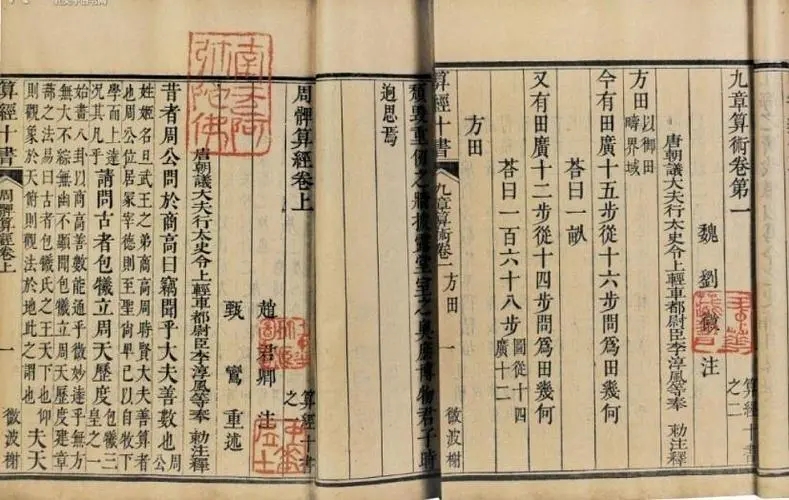 九章算術卷第一
魏 劉徽 注 算經十書之二
唐朝議大夫行太史令上輕車都尉臣李淳風等奉 勅注釋
方田以御田疇界域
今有田廣十五步從十六步問爲田幾何
荅曰一畝
又有田廣十二步從十四步問爲田幾何
荅曰一百六十八步圖從十四廣十二
方田
算經十書 九章算術卷一 方田 一 微波榭
頹毀重仞之牆披露堂室之奧庶博物君子時
迥思焉
周髀算經卷上 算經十書之
趙君卿 注
甄鸞 重述
唐朝議大夫行太史令上輕車都尉臣李淳風等奉 勅注釋
昔者周公問於商高曰竊聞乎大夫善數也周公
姓姬名旦武王之弟商高周時賢大夫善算者
也周公位居冢宰德則至聖尚卑己以自牧下
學而上達況其凡乎請問古者包犧立周天歷度包犧三皇之一
始畫八卦以商高善數能通乎微妙達乎無方
無大不綜無幽不顯聞包犧立周天歷度建章
蔀之法易曰古者包犧氏之王天下也仰
則觀象於天俯則觀法於地此之謂也夫天
算經十書 周髀算經卷上 一 微波榭
南无阿弥陀佛